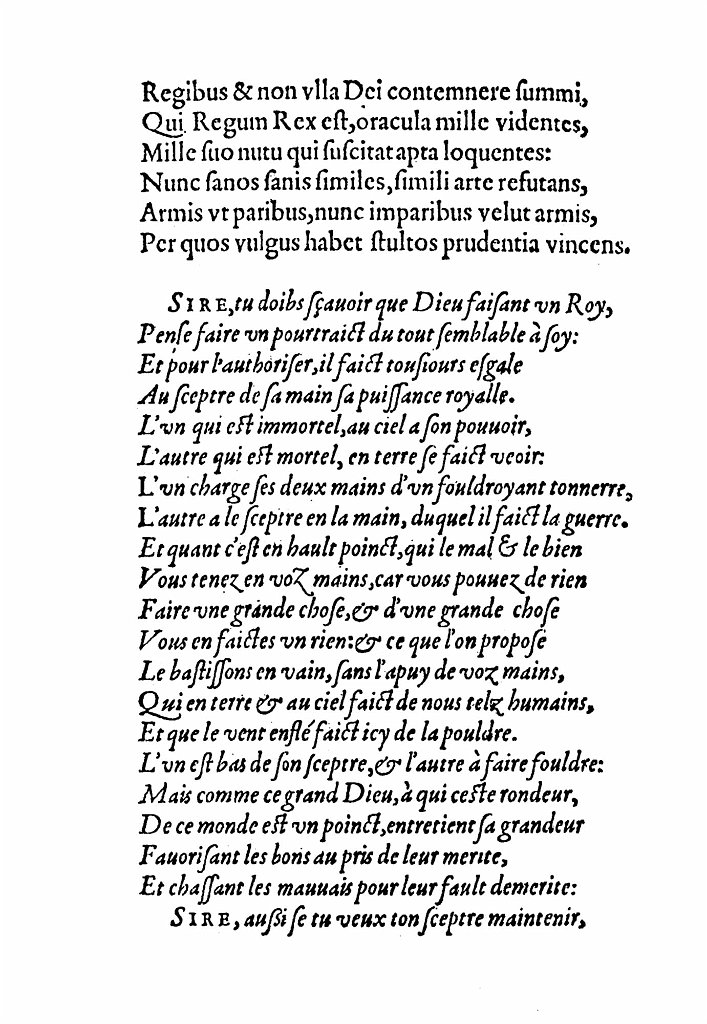 Regibus & non vlla Dei contemnere ſummi,
Qui Regum Rex eſt, oracula mille videntes,
Mille ſuo nutu qui ſuſcitat apta loquentes:
Nunc ſanos ſanis ſimiles, ſimili arte refutans,
Armis vt paribus, nunc imparibus velut armis,
Per quos vulgus habet ſtultos prudentia vincens.
SIRE, tu doibs ſçauoir que Dieu faiſant vn Roy,
Penſe faire vn pourtraict du tout ſemblable à ſoy:
Et pour l'authoriſer, il faict touſiours eſgale
Au ſceptre de ſa main ſa puiſſance royalle.
L'vn qui eſt immortel, au ciel a ſon pouuoir,
L'autre qui eſt mortel, en terre ſe faict veoir:
L'vn charge ſes deux mains d'vn fouldroyant tonnerre,
L'autre a le ſceptre en la main, duquel il faict la guerre.
Et quant c'eſt en hault poinct, qui le mal & le bien
Vous tenez en voz mains, car vous pouuez de rien
Faire vne grande choſe, & d'vne grande choſe
Vous en faictes vn rien: & ce que l'on propoſe
Le baſtiſſons en vain, ſans l'apuy de voz mains,
Qui en terre & au ciel faict de nous telz humains,
Et que le vent enflé faict icy de la pouldre.
L'vn eſt bas de ſon ſceptre, & l'autre à faire fouldre:
Mais comme ce grand Dieu, à qui ceſte rondeur,
De ce monde eſt vn poinct, entretient ſa grandeur
Fauoriſant les bons au pris de leur merite,
Et chaſſant les mauuais pour leur fault demerite:
SIRE, auſsi ſe tu veux ton ſceptre maintenir,